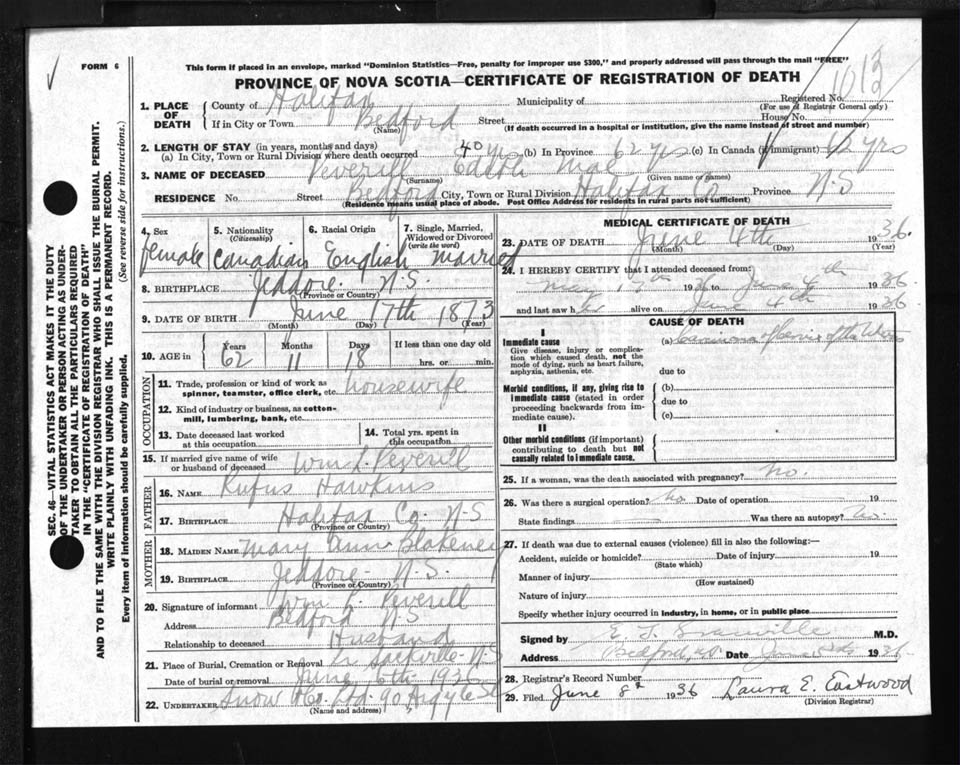 FORM 6
This form if placed in an envelope, marked "Dominion Statistics—Free, penalty for improper use $300," and properly addressed will pass through the mail "FREE"
PROVINCE OF NOVA SCOTIA—CERTIFICATE OF REGISTRATION OF DEATH
1013
1. PLACE OF DEATH County of Halifax Municipality of Registered No.
(For use of Registrar General only)
If in City or Town Bedford Street House No.
(Name) (If death occurred in a hospital or institution, give the name instead of street and number)
2. LENGTH OF STAY (in years, months and days)
(a) In City, Town or Rural Division where death occurred 40 yrs (b) In Province 62 yrs (c) In Canada (if immigrant) 62 yrs
3. NAME OF DECEASED Peverill Mae
(Surname) (Given name or names)
RESIDENCE No. Street Bedford City, Town or Rural Division Halifax Co Province N-S
(Residence means usual place of abode. Post Office Address for residents in rural parts not sufficient)
4. Sex 5. Nationality (Citizenship) 6. Racial Origin 7. Single, Married, Widowed or Divorced (write the word)
female Canadian English married
8. BIRTHPLACE Jeddore N.S.
(Province or Country)
9. DATE OF BIRTH June 17th 1873
(Month) (Day) (Year)
10. AGE in Years Months Days If less than one day old
62 11 18 hrs. or min.
OCCUPATION
11. Trade, profession or kind of work as spinner, teamster, office clerk, etc. housewife
12. Kind of industry or business, as cotton-mill, lumbering, bank, etc.
13. Date deceased last worked at this occupation
14. Total yrs. spent in this occupation
15. If married give name of wife or husband of deceased Wm L. Peverill
FATHER
16. NAME Rufus Hawkins
17. BIRTHPLACE Halifax Co. N-S
(Province or Country)
MOTHER
18. MAIDEN NAME Mary Ann Blakeney
19. BIRTHPLACE Jeddore- N.S.
(Province or Country)
20. Signature of informant Wm L. Peverill
Address Bedford N-S
Relationship to deceased Husband
21. Place of Burial, Cremation or Removal Sackville-N-S
Date of burial or removal June 6th 1936
22. UNDERTAKER Snow & Co. Ltd. 90 Argyle St
(Name and address)
MEDICAL CERTIFICATE OF DEATH
23. DATE OF DEATH June 4th 1936.
(Month) (Day) (Year)
24. I HEREBY CERTIFY that I attended deceased from:
May 1936 to June 4th 1936
and last saw her alive on June 4th 1936
CAUSE OF DEATH
I
Immediate cause
Give disease, injury or complication which caused death, not the mode of dying, such as heart failure, asphyxia, asthenia, etc.
(a) Carcinoma of Cervix of the Uterus
due to
Morbid conditions, if any, giving rise to immediate cause (stated in order proceeding backwards from immediate cause).
(b)
due to
(c)
II
Other morbid conditions (if important) contributing to death but not causally related to immediate cause.
25. If a woman, was the death associated with pregnancy? No.
26. Was there a surgical operation? No Date of operation 19
State findings Was there an autopsy? No.
27. If death was due to external causes (violence) fill in also the following:—
Accident, suicide or homicide? Date of injury 19
(State which)
Manner of injury
(How sustained)
Nature of injury
Specify whether injury occurred in industry, in home, or in public place
Signed by M.D.
Address Bedford, N.S. Date June 1936-
28. Registrar's Record Number
29. Filed June 8th 1936 Laura E. Eastwood
(Division Registrar)
SEC. 46—VITAL STATISTICS ACT MAKES IT THE DUTY
OF THE UNDERTAKER OR PERSON ACTING AS UNDER-
TAKER TO OBTAIN ALL THE PARTICULARS REQUIRED
IN THE "CERTIFICATE OF REGISTRATION OF DEATH"
AND TO FILE THE SAME WITH THE DIVISION REGISTRAR WHO SHALL ISSUE THE BURIAL PERMIT.
WRITE PLAINLY WITH UNFADING INK. THIS IS A PERMANENT RECORD.
Every item of information should be carefully supplied. (See reverse side for instructions.)